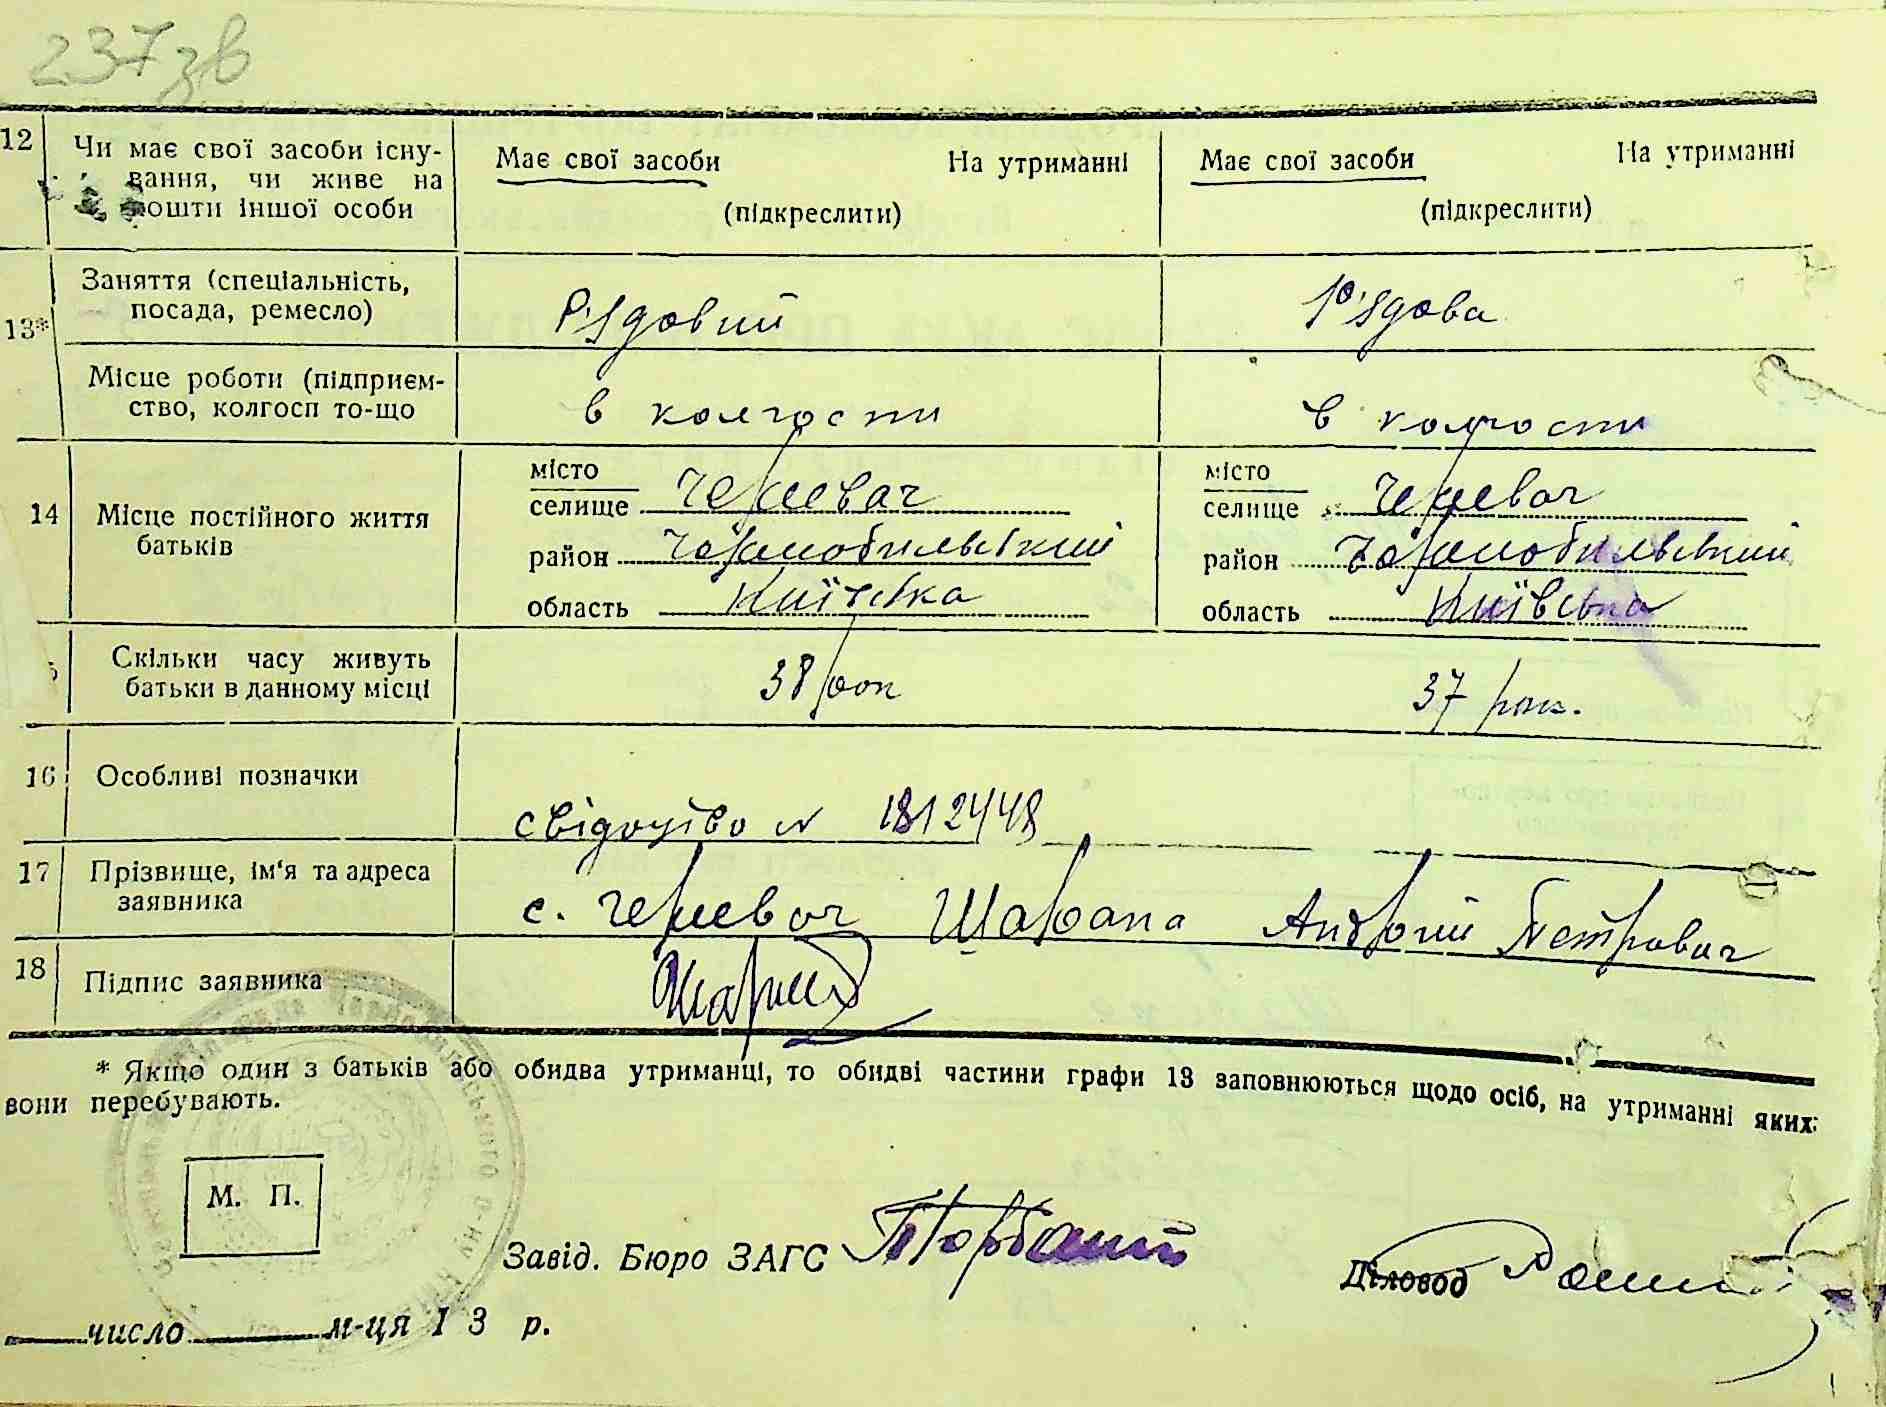 237зв
12 Чи має свої засоби існу- Має свої засоби На утриманні Має свої засоби На утриманні
вання, чи живе на
кошти іншої особи (підкреслити) (підкреслити)
13* Заняття (спеціальність, посада, ремесло) Рядовий Рядова
Місце роботи (підприєм-
ство, колгосп то-що в колгоспи в колгоспи
14 Місце постійного життя батьків
місто селище Черевач місто селище Черевач
район Чорнобильський район Чорнобильський
область Київська область Київська
Скільки часу живуть
батьки в данному місці 38 рок 37 рок.
16 Особливі позначки свідоцтво N 1812448
17 Прізвище, ім'я та адреса
заявника с. Черевач Шарапа Андрій Петрович
18 Підпис заявника
* Якщо один з батьків або обидва утриманці, то обидві частини графи 13 заповнюються щодо осіб, на утриманні яких
вони перебувають.
М. П.
Завід. Бюро ЗАГС Діловод
число м-ця 1 3 р.